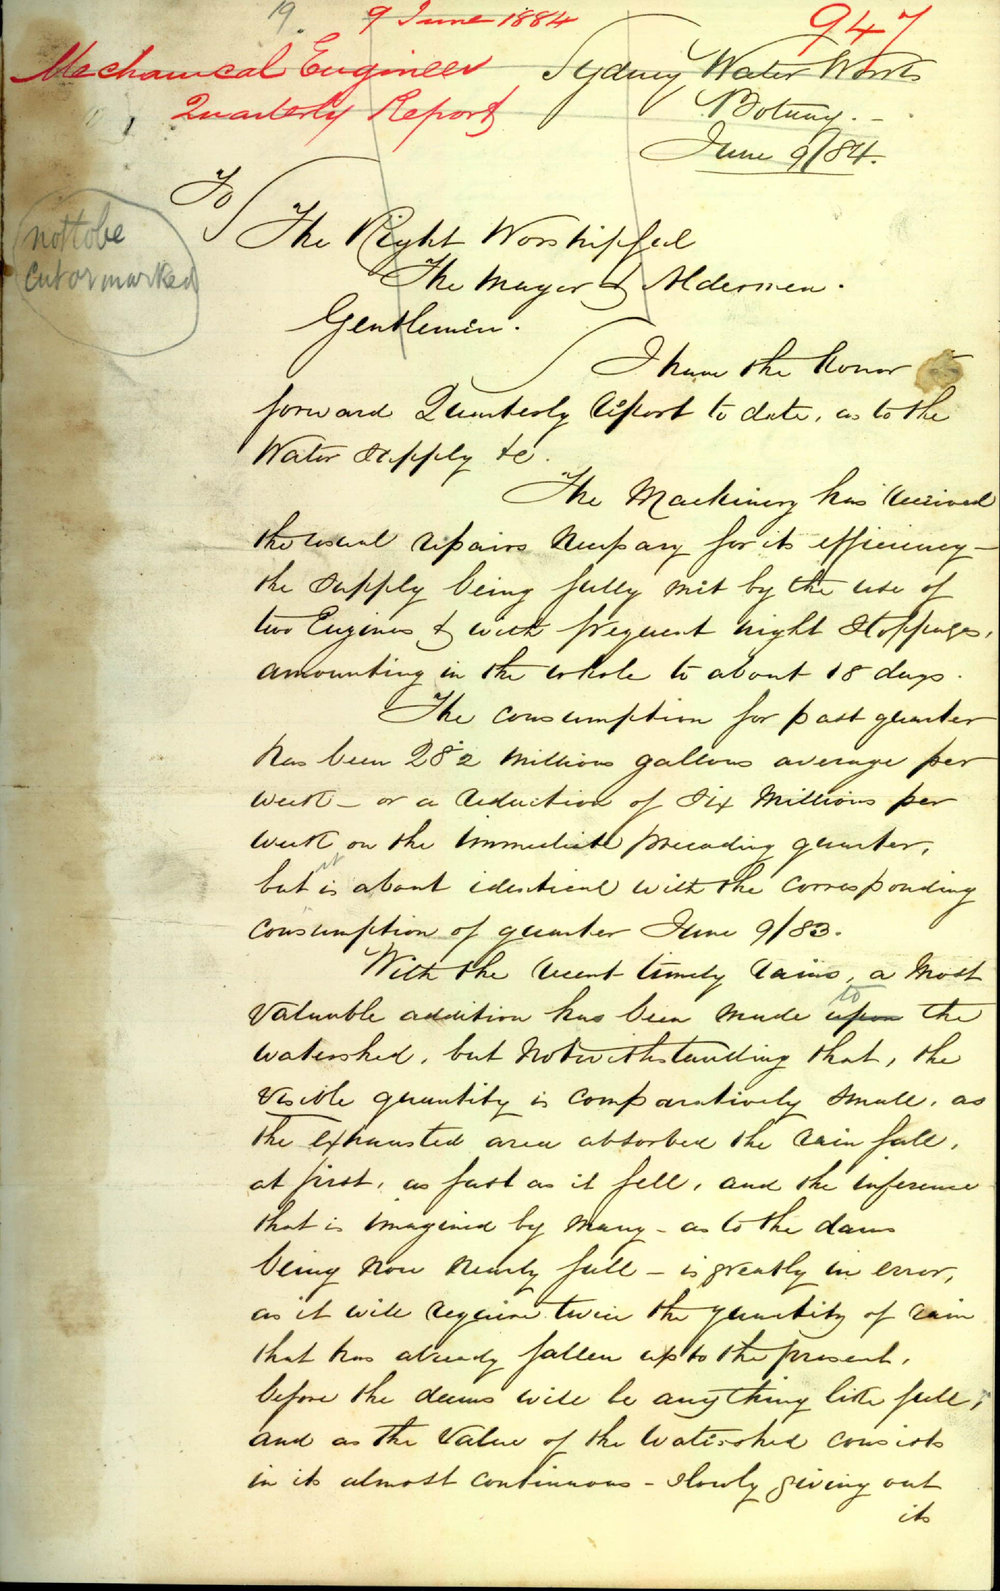 19.
9 June 1884
947
Mechanical Engineer
Quarterly Report
Sydney Water Works
Botany.
June 9/84.
not to be
cut or marked
To
The Right Worshipful
The Mayor & Aldermen.
Gentlemen.
I have the honor to
forward Quarterly Report to date, as to the
Water Supply &c.
The Machinery has received
the usual repairs necessary for its efficiency —
the supply being fully met by the use of
two Engines & with frequent night stoppages,
amounting in the whole to about 18 days.
The consumption for past quarter
has been 28.2 Millions gallons average per
week — or a reduction of six Millions per
week on the immediate preceding quarter,
but it is about identical with the corresponding
consumption of quarter June 9/83.
With the recent timely rains, a most
valuable addition has been made upon to the
watershed, but notwithstanding that, the
visible quantity is comparatively small, as
the exhausted area absorbed the rain fall,
at first, as fast as it fell, and the inference
that is imagined by many — as to the dams
being now nearly full — is greatly in error,
as it will require twice the quantity of rain
that has already fallen up to the present,
before the dams will be anything like full,
and as the value of the Watershed consists
in its almost continuous — slowly giving out
its